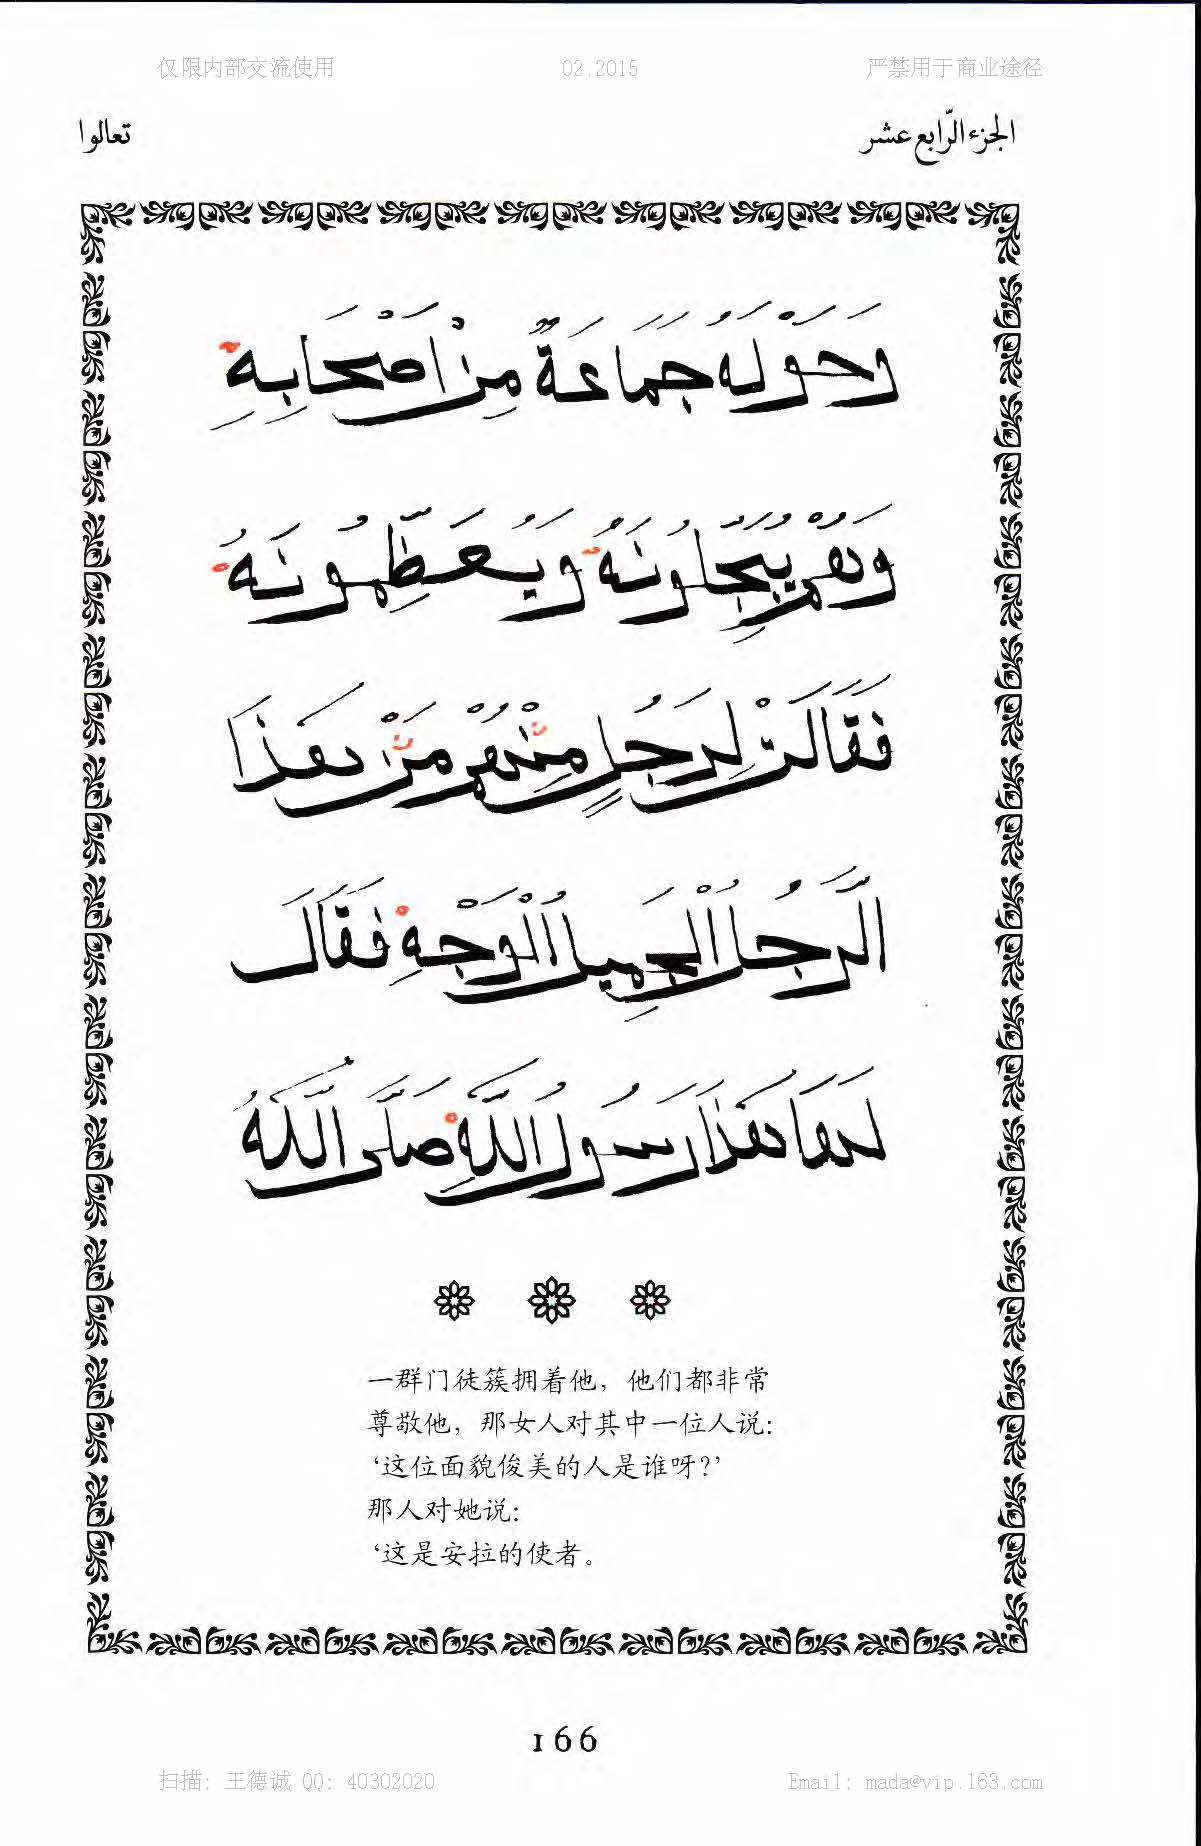 仅限内部交流使用 02.2015 严禁用于商业途径
الجزء الرّابع عشر تعالوا
وَحَوْلَهُ جَمَاعَةٌ مِنْ اَصْحَابِهِ
وَهُمْ يُبَجِّلُونَهُ وَيُعَظِّمُونَهُ
فَقَالَتْ لِرَجُلٍ مِنْهُمْ مَنْ هَذَا
الرَّجُلُ الْجَمِيلُ الْوَجْهِ فَقَالَ
لَهَا هَذَا رَسُولُ اللَّهِ صَلَّى اللَّهُ
一群门徒簇拥着他，他们都非常
尊敬他，那女人对其中一位人说：
‘这位面貌俊美的人是谁呀?’
那人对她说：
‘这是安拉的使者。
166
扫描: 王德诚 QQ: 40302020 Email: mada@vip.163.com